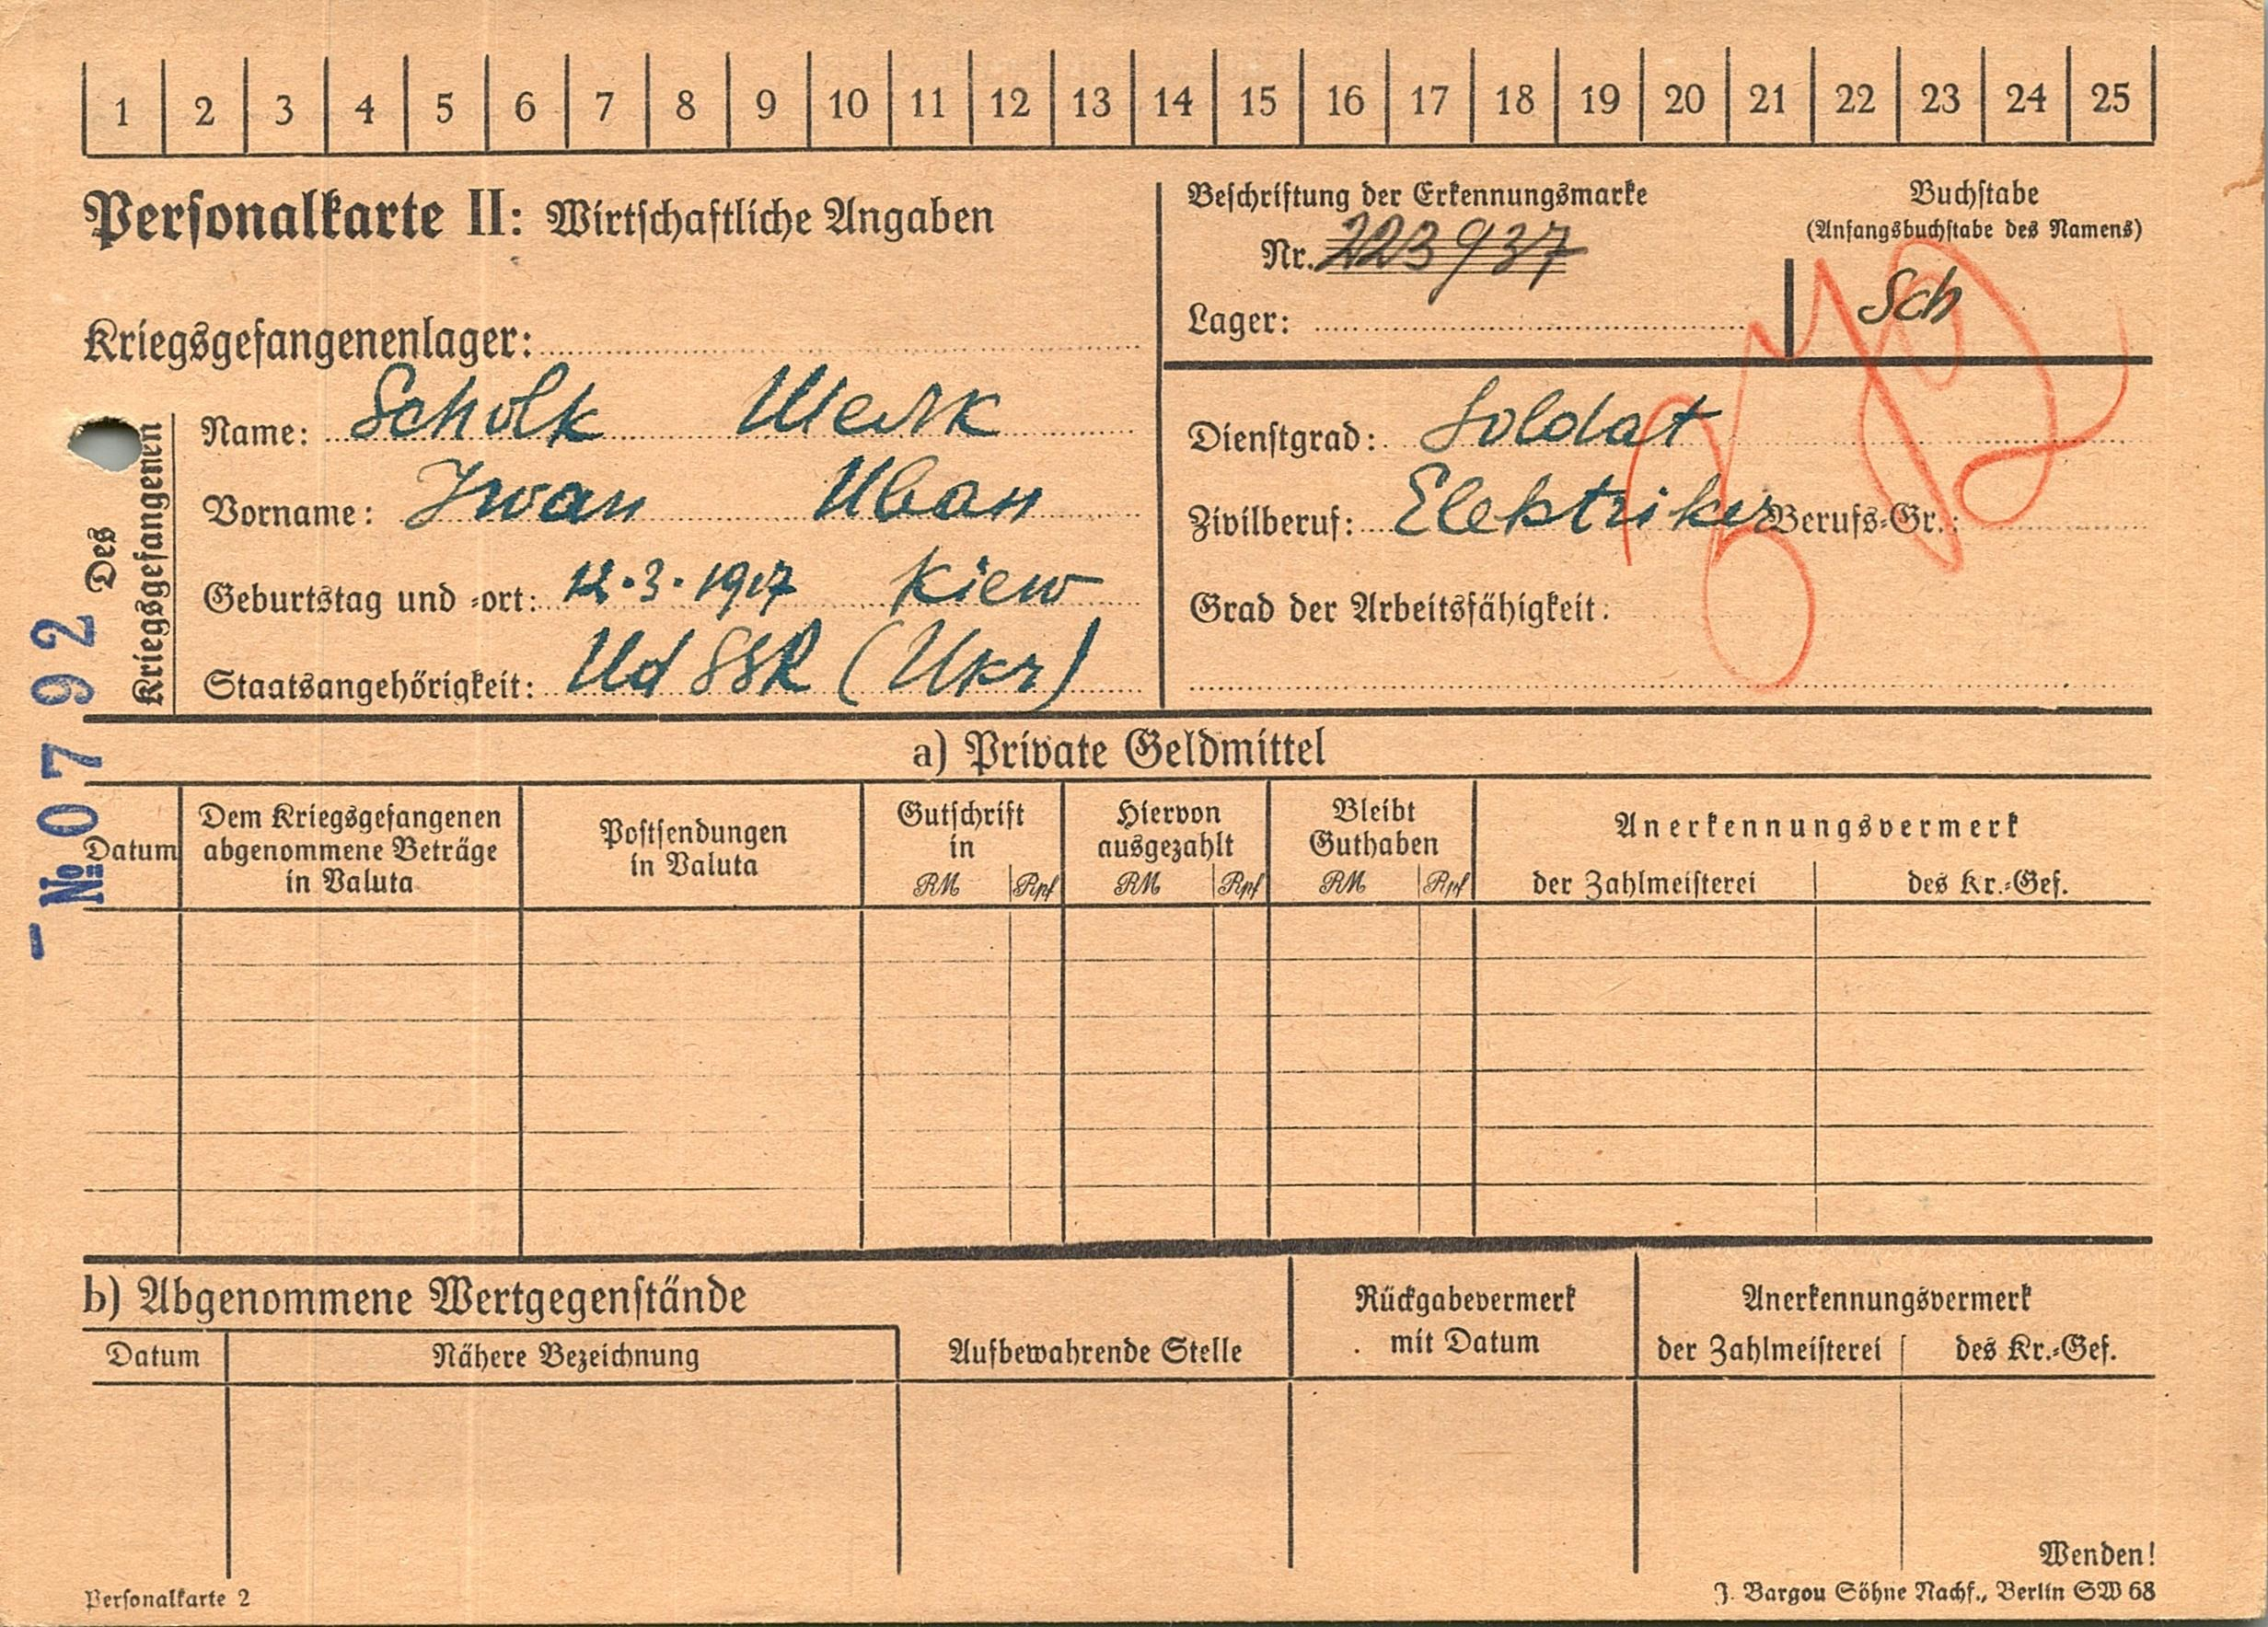 1 2 3 4 5 6 7 8 9 10 11 12 13 14 15 16 17 18 19 20 21 22 23 24 25
Personalkarte II: Wirtschaftliche Angaben
Beschriftung der Erkennungsmarke
Nr. 223937
Lager:
Buchstabe
(Anfangsbuchstabe des Namens)
Sch
Kriegsgefangenenlager:
Des Kriegsgefangenen
Name: Scholk Шелк
Vorname: Iwan Иван
Geburtstag und =ort: 12.3.1917 Kiew
Staatsangehörigkeit: UdSSR (Ukr)
Dienstgrad: Soldat
Zivilberuf: Elektriker Berufs=Gr.:
Grad der Arbeitsfähigkeit:
№ 07792
a) Private Geldmittel
Datum
Dem Kriegsgefangenen
abgenommene Beträge
in Valuta
Postsendungen
in Valuta
Gutschrift
in
RM Rpf
Hiervon
ausgezahlt
RM Rpf
Bleibt
Guthaben
RM Rpf
Anerkennungsvermerk
der Zahlmeisterei des Kr.=Gef.
b) Abgenommene Wertgegenstände
Datum Nähere Bezeichnung
Aufbewahrende Stelle
Rückgabevermerk
mit Datum
Anerkennungsvermerk
der Zahlmeisterei des Kr.=Gef.
Wenden!
Personalkarte 2
J. Bargou Söhne Nachf., Berlin SW 68